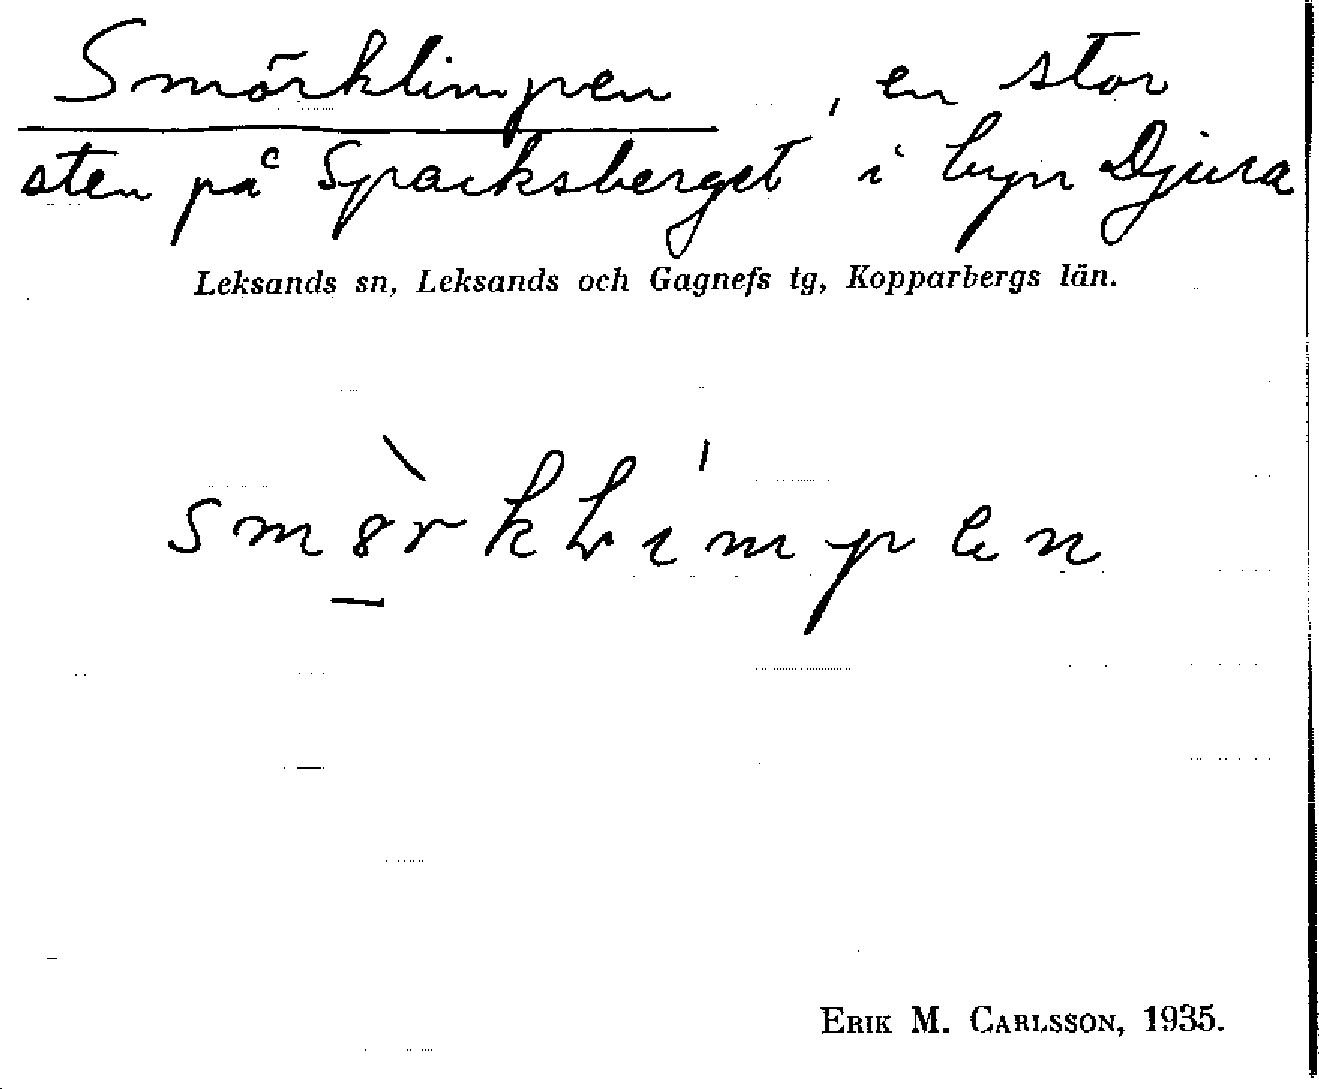 Smörklimpen, en stor
sten på Spacksberget i byn Djura
Leksands sn, Leksands och Gagnefs tg, Kopparbergs län.
ERIK M. CARLSSON, 1935.